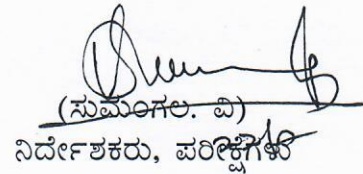 (ಸುಮಂಗಲ. ವಿ)
ನಿರ್ದೇಶಕರು, ಪರೀಕ್ಷೆಗಳು